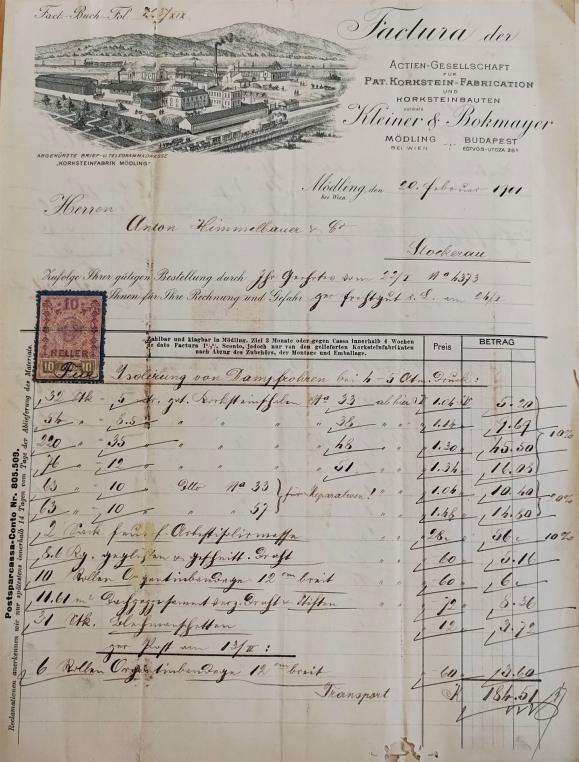 Fact.-Buch-Fol.
Factura der
ACTIEN-GESELLSCHAFT
FÜR
PAT. KORKSTEIN-FABRICATION
UND
KORKSTEINBAUTEN
vormals
Kleiner & Bokmayer
MÖDLING BUDAPEST
BEI WIEN EÖTVÖS-UTCZA
ABGEKÜRZTE BRIEF- u. TELEGRAMMADRESSE
„KORKSTEINFABRIK MÖDLING“
Mödling, den 20. Februar 1901
bei Wien
Herren
Anton Himmelbauer & Co
Stockerau
Zufolge Ihrer gütigen Bestellung durch Ihr Geehrtes vom 22/I No 4373
Ihnen für Ihre Rechnung und Gefahr per Frachtgut
10
HELLER
10 10
Zahlbar und klagbar in Mödling. Ziel 3 Monate oder gegen Cassa innerhalb 4 Wochen
à dato Factura Sconto, jedoch nur von den gelieferten Korksteinfabrikaten
nach Abzug des Zubehörs, der Montage und Emballage.
Preis BETRAG
Isolirung von Dampfrohren bei 4-5 Atm. Druck:
32 Stk 5 Korksteinschalen No 33 ab hier K 1.04 K 5.20
54 " 6.5 " " " " 38 " " 1.18 7.69
220 " 35 " " " " 48 " " 1.30 45.50 10%
76 " 12 " " " " 51 " " 1.34 16.08
63 " 10 " Dtto No 33 für Reparaturen! " " 1.04 10.40
63 " 10 " " 57 " " 1.48 14.80
2 28. 56. 10%
8.6 Kg. geglühten & geschnitt. Draht " " 60 5.16
10 Rollen Organtinbandage 12 cm breit " " 60 6.
11.61 m² verz. Draht & Stiften " " 72 8.36
31 Stk. Blechmanschetten " " 12 3.72
per Post am 13/II:
6 Rollen Organtinbandage 12 cm breit 60 3.60
Transport K 184.51
Postsparcassa-Conto Nr. 805.509.
Reclamationen anerkennen wir nur spätestens innerhalb 14 Tagen vom Tage der Ablieferung des Materials.